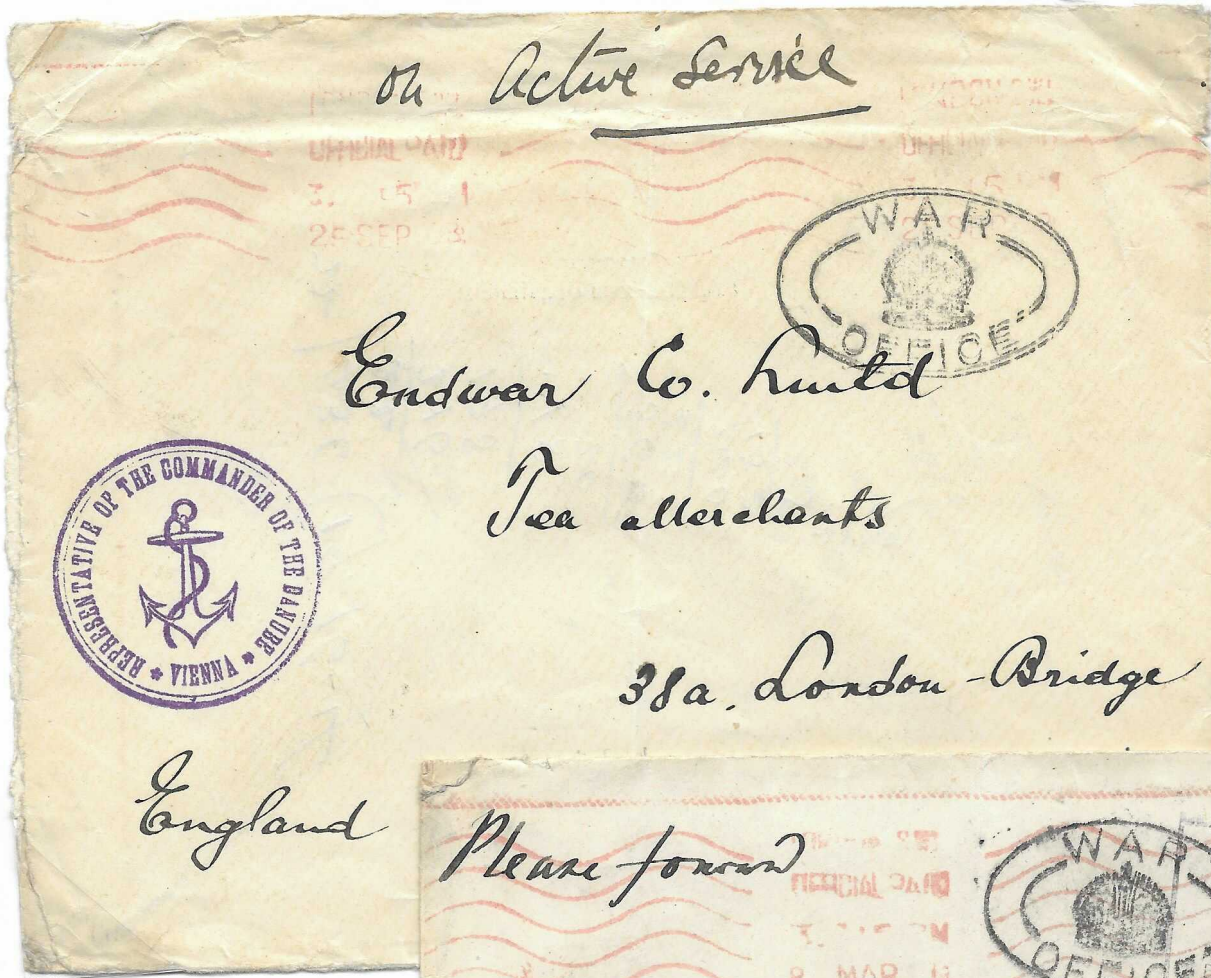 On Active Service
OFFICIAL PAID
25 SEP
WAR
OFFICE
Endwar Co. Limtd
Tea Merchants
REPRESENTATIVE OF THE COMMANDER OF THE DANUBE
* VIENNA *
38a. London-Bridge
England
Please forward
WAR
OFFICE
OFFICIAL PAID
MAR